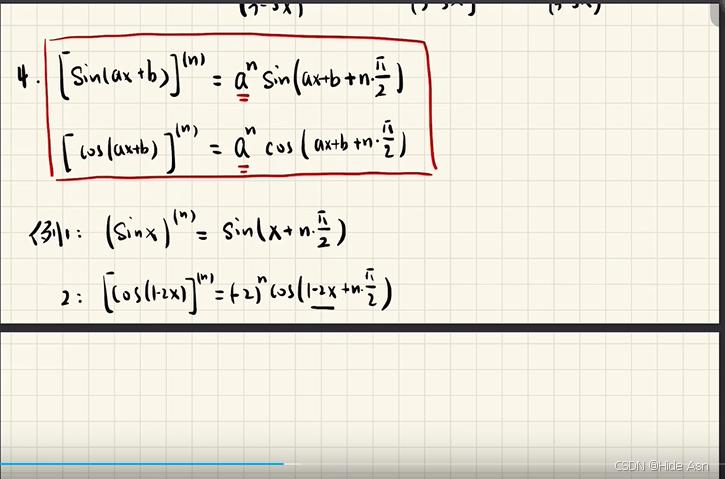 4. [sin(ax+b)]^(n) = a^n sin(ax+b+n·π/2)
[cos(ax+b)]^(n) = a^n cos(ax+b+n·π/2)
例1: (sinx)^(n) = sin(x+n·π/2)
2: [cos(1-2x)]^(n) = (-2)^n cos(1-2x+n·π/2)
CSDN @Hide Asn